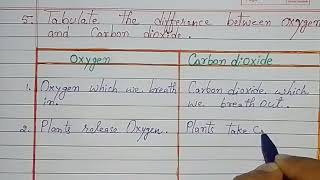 5. Tabulate the difference between oxygen
and Carbon dioxide.
Oxygen Carbon dioxide
1. Oxygen which we breath Carbon dioxide which
in. we breath out.
2. Plants release Oxygen. Plants Take C